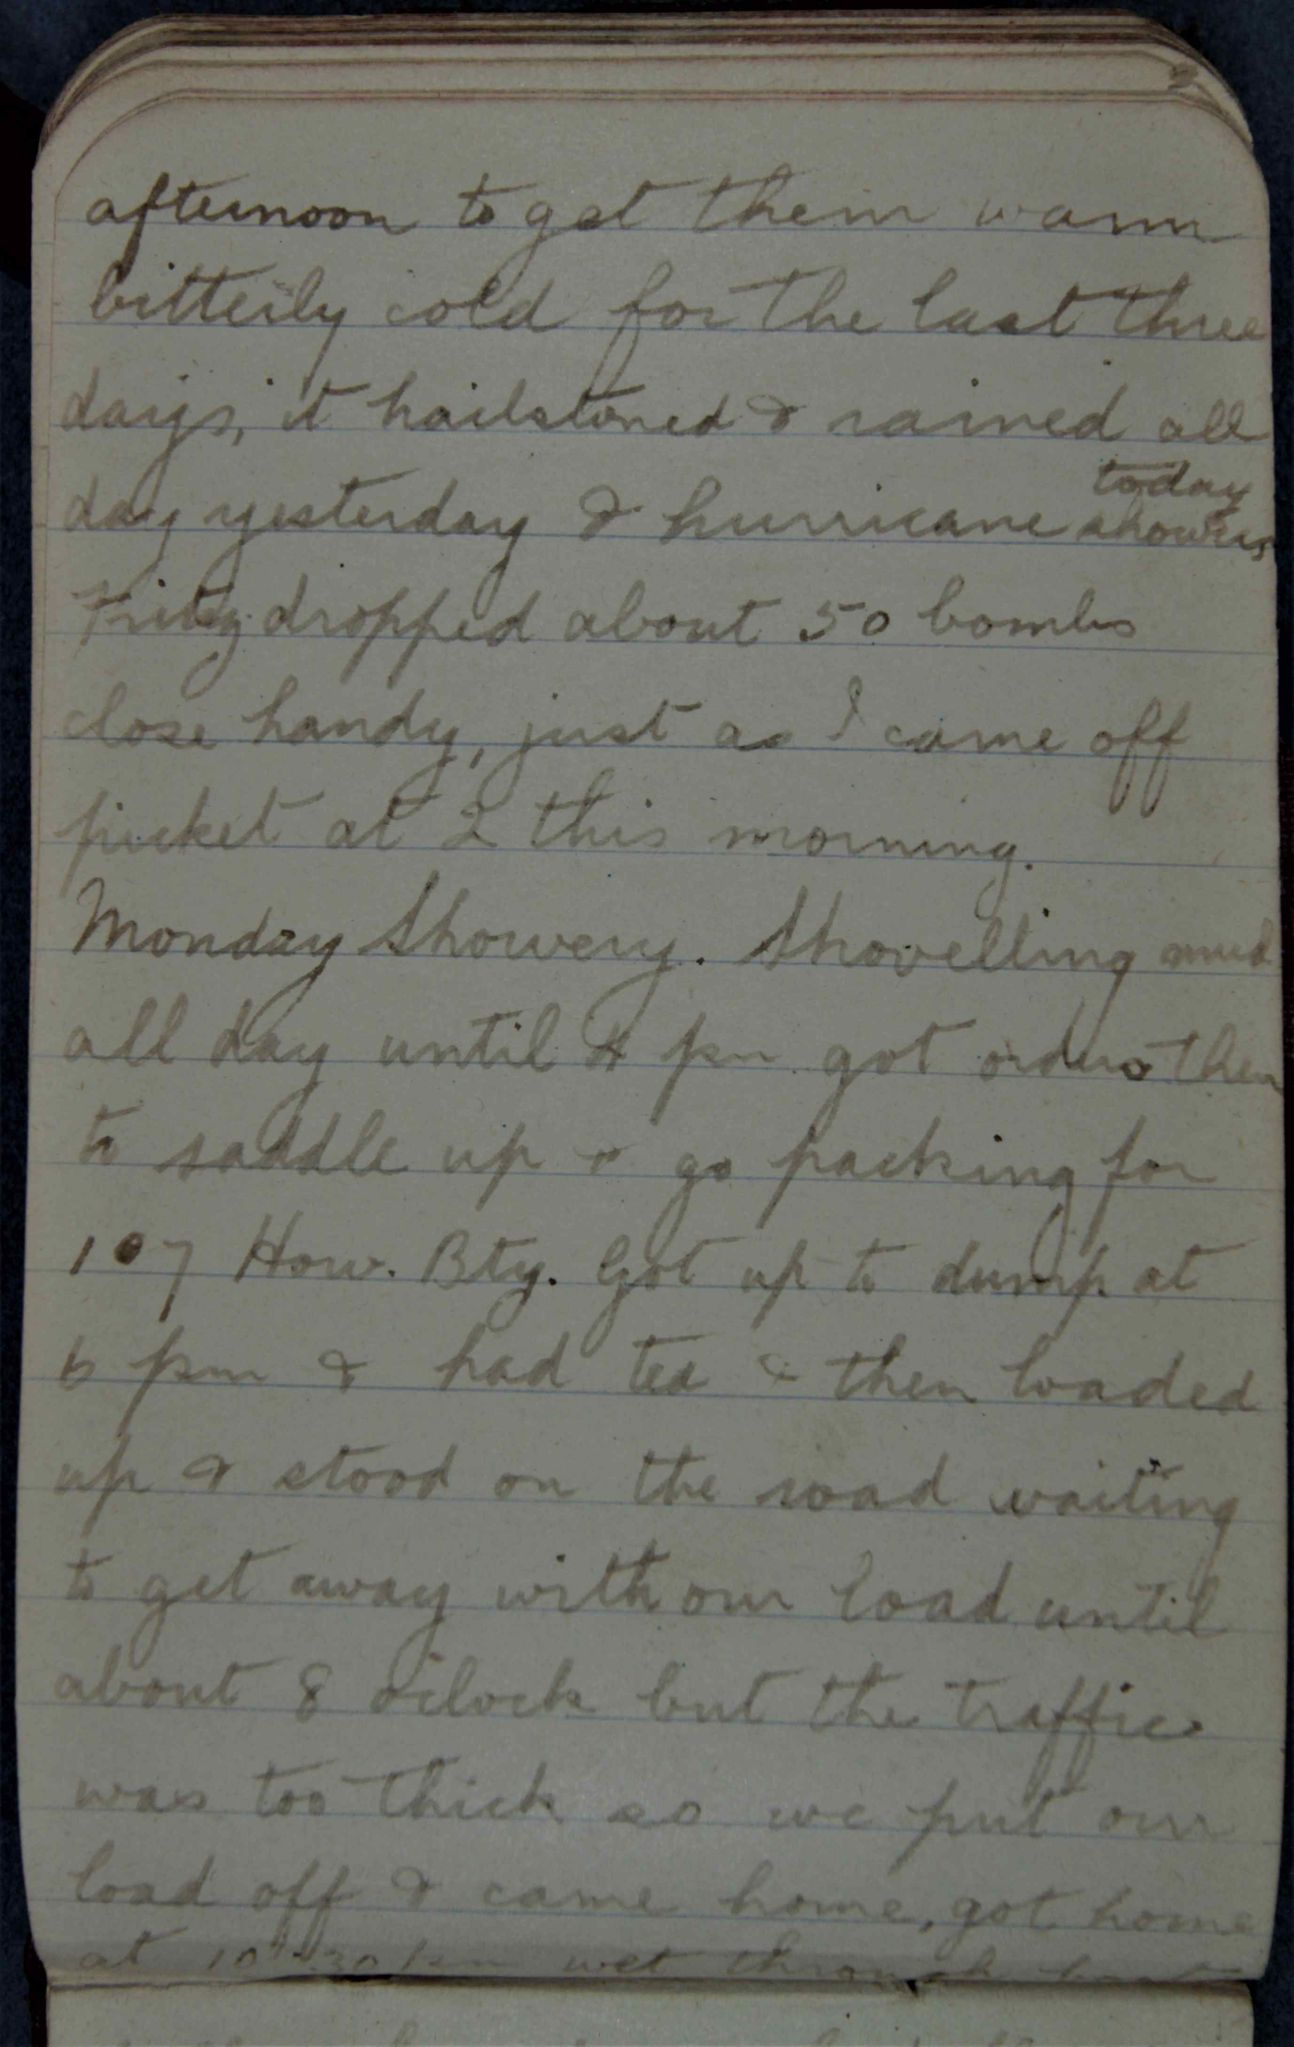 afternoon to get them warm
bitterly cold for the last three
days, it hailstoned & rained all
today
day yesterday & hurricane showers
Fritz dropped about 50 bombs
close handy, just as I came off
picket at 2 this morning.
Monday Showery. Shovelling mud
all day until 4 pm got orders then
to saddle up & go packing for
107 How. Bty. Got up to dump at
6 pm & had tea & then loaded
up & stood on the road waiting
to get away with our load until
about 8 oclock but the traffic
was too thick so we put our
load off & came home, got home
at 10.30 pm wet through